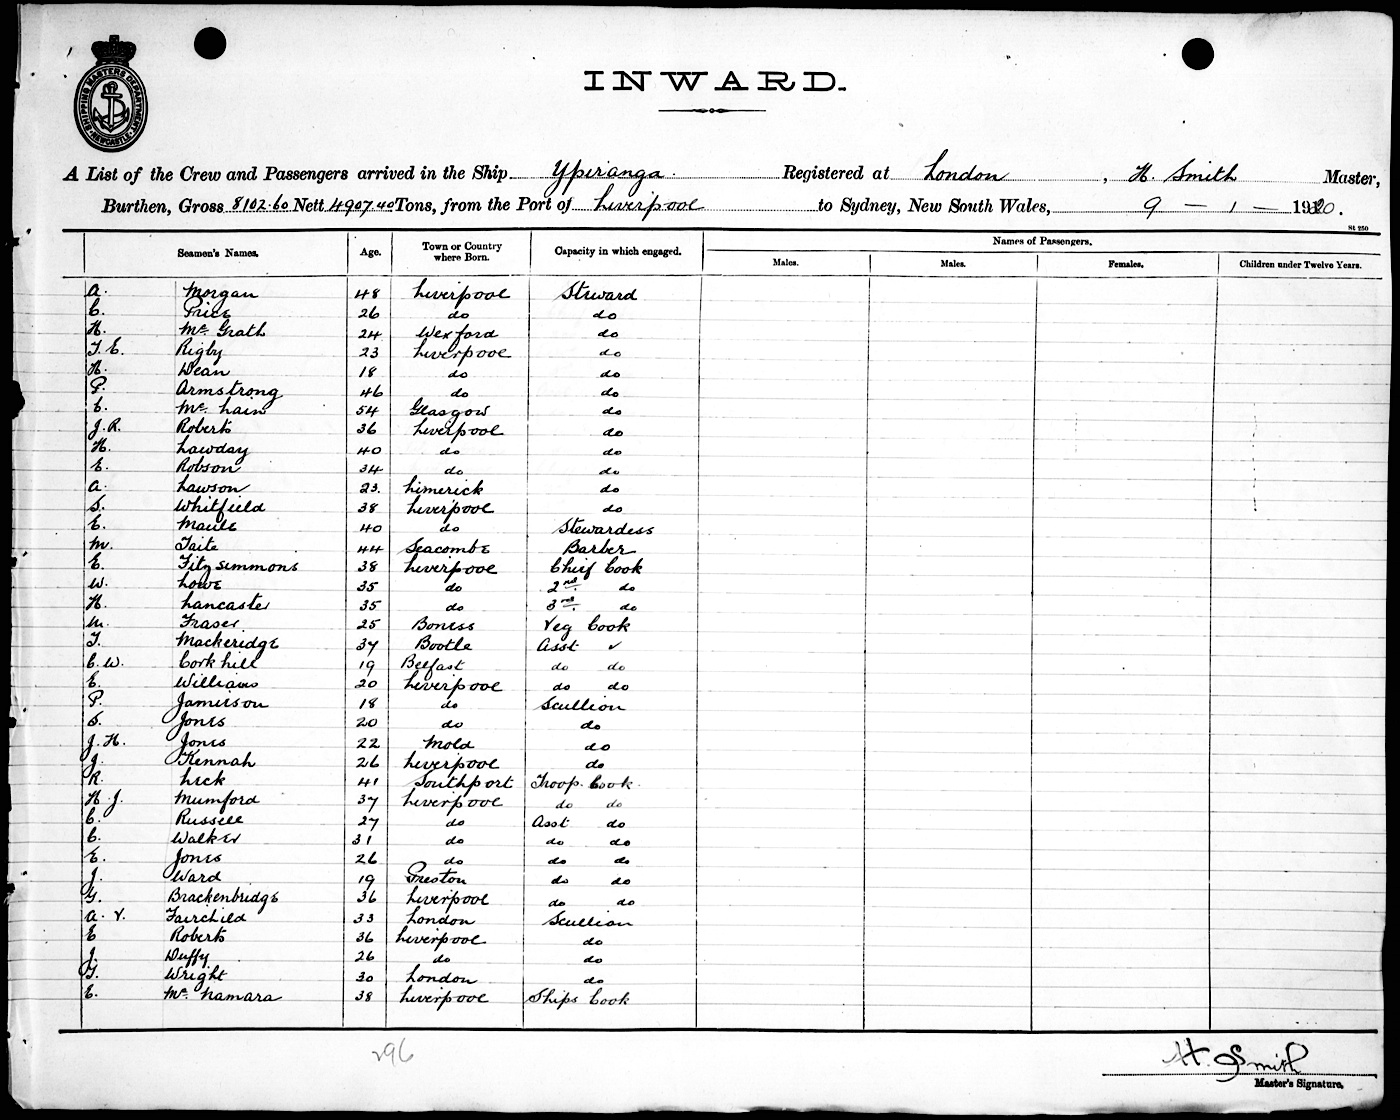 SHIPPING MASTERS DEPARTMENT
NEWCASTLE
INWARD.
A List of the Crew and Passengers arrived in the Ship Ypiranga Registered at London, H. Smith Master,
Burthen, Gross 8102.60 Nett 4907.40 Tons, from the Port of Liverpool to Sydney, New South Wales, 9 - 1 - 1920.
St 250
Seamen's Names. Age. Town or Country where Born. Capacity in which engaged. Names of Passengers.
Males. Males. Females. Children under Twelve Years.
A. Morgan 48 Liverpool Steward
C. Price 26 do do
H. McGrath 24 Wexford do
T. E. Rigby 23 Liverpool do
H. Dean 18 do do
P. Armstrong 46 do do
C. McLain 54 Glasgow do
J. R. Roberts 36 Liverpool do
H. Lawday 40 do do
E. Robson 34 do do
A. Lawson 23. Limerick do
S. Whitfield 38 Liverpool do
E. Maule 40 do Stewardess
M. Taite 44 Seacombe Barber
E. Fitzsimmons 38 Liverpool Chief Cook
W. Lowe 35 do 2nd do
H. Lancaster 35 do 3rd do
M. Fraser 25 Boness Veg Cook
T. Mackeridge 37 Bootle Asst
C. W. Corkhill 19 Belfast do do
E. Williams 20 Liverpool do do
P. Jamieson 18 do Scullion
S. Jones 20 do do
J. H. Jones 22 Mold do
J. Kennah 26 Liverpool do
R. Lick 41 Southport Troop. Cook
H. J. Mumford 37 Liverpool do do
C. Russell 27 do Asst do
C. Walker 31 do do do
E. Jones 26 do do do
J. Ward 19 Preston do do
G. Brackenbridge 36 Liverpool do do
A. V. Fairchild 33 London Scullion
E Roberts 36 Liverpool do
J. Duffy 26 do do
G. Wright 30 London do
E. McNamara 38 Liverpool Ships Cook
296
H. Smith
Master's Signature.